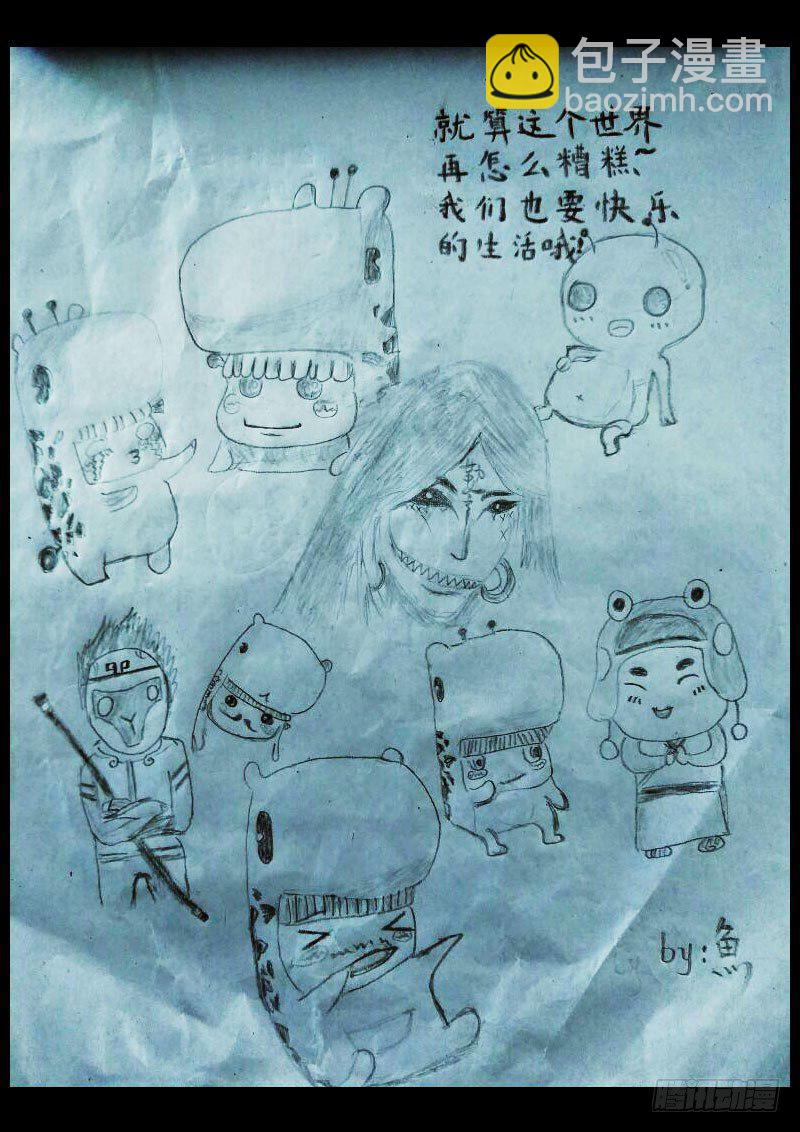 包子漫畫
baozimh.com
就算这个世界
再怎么糟糕~
我们也要快乐
的生活哦!
勒
qp
by:魚
腾讯动漫